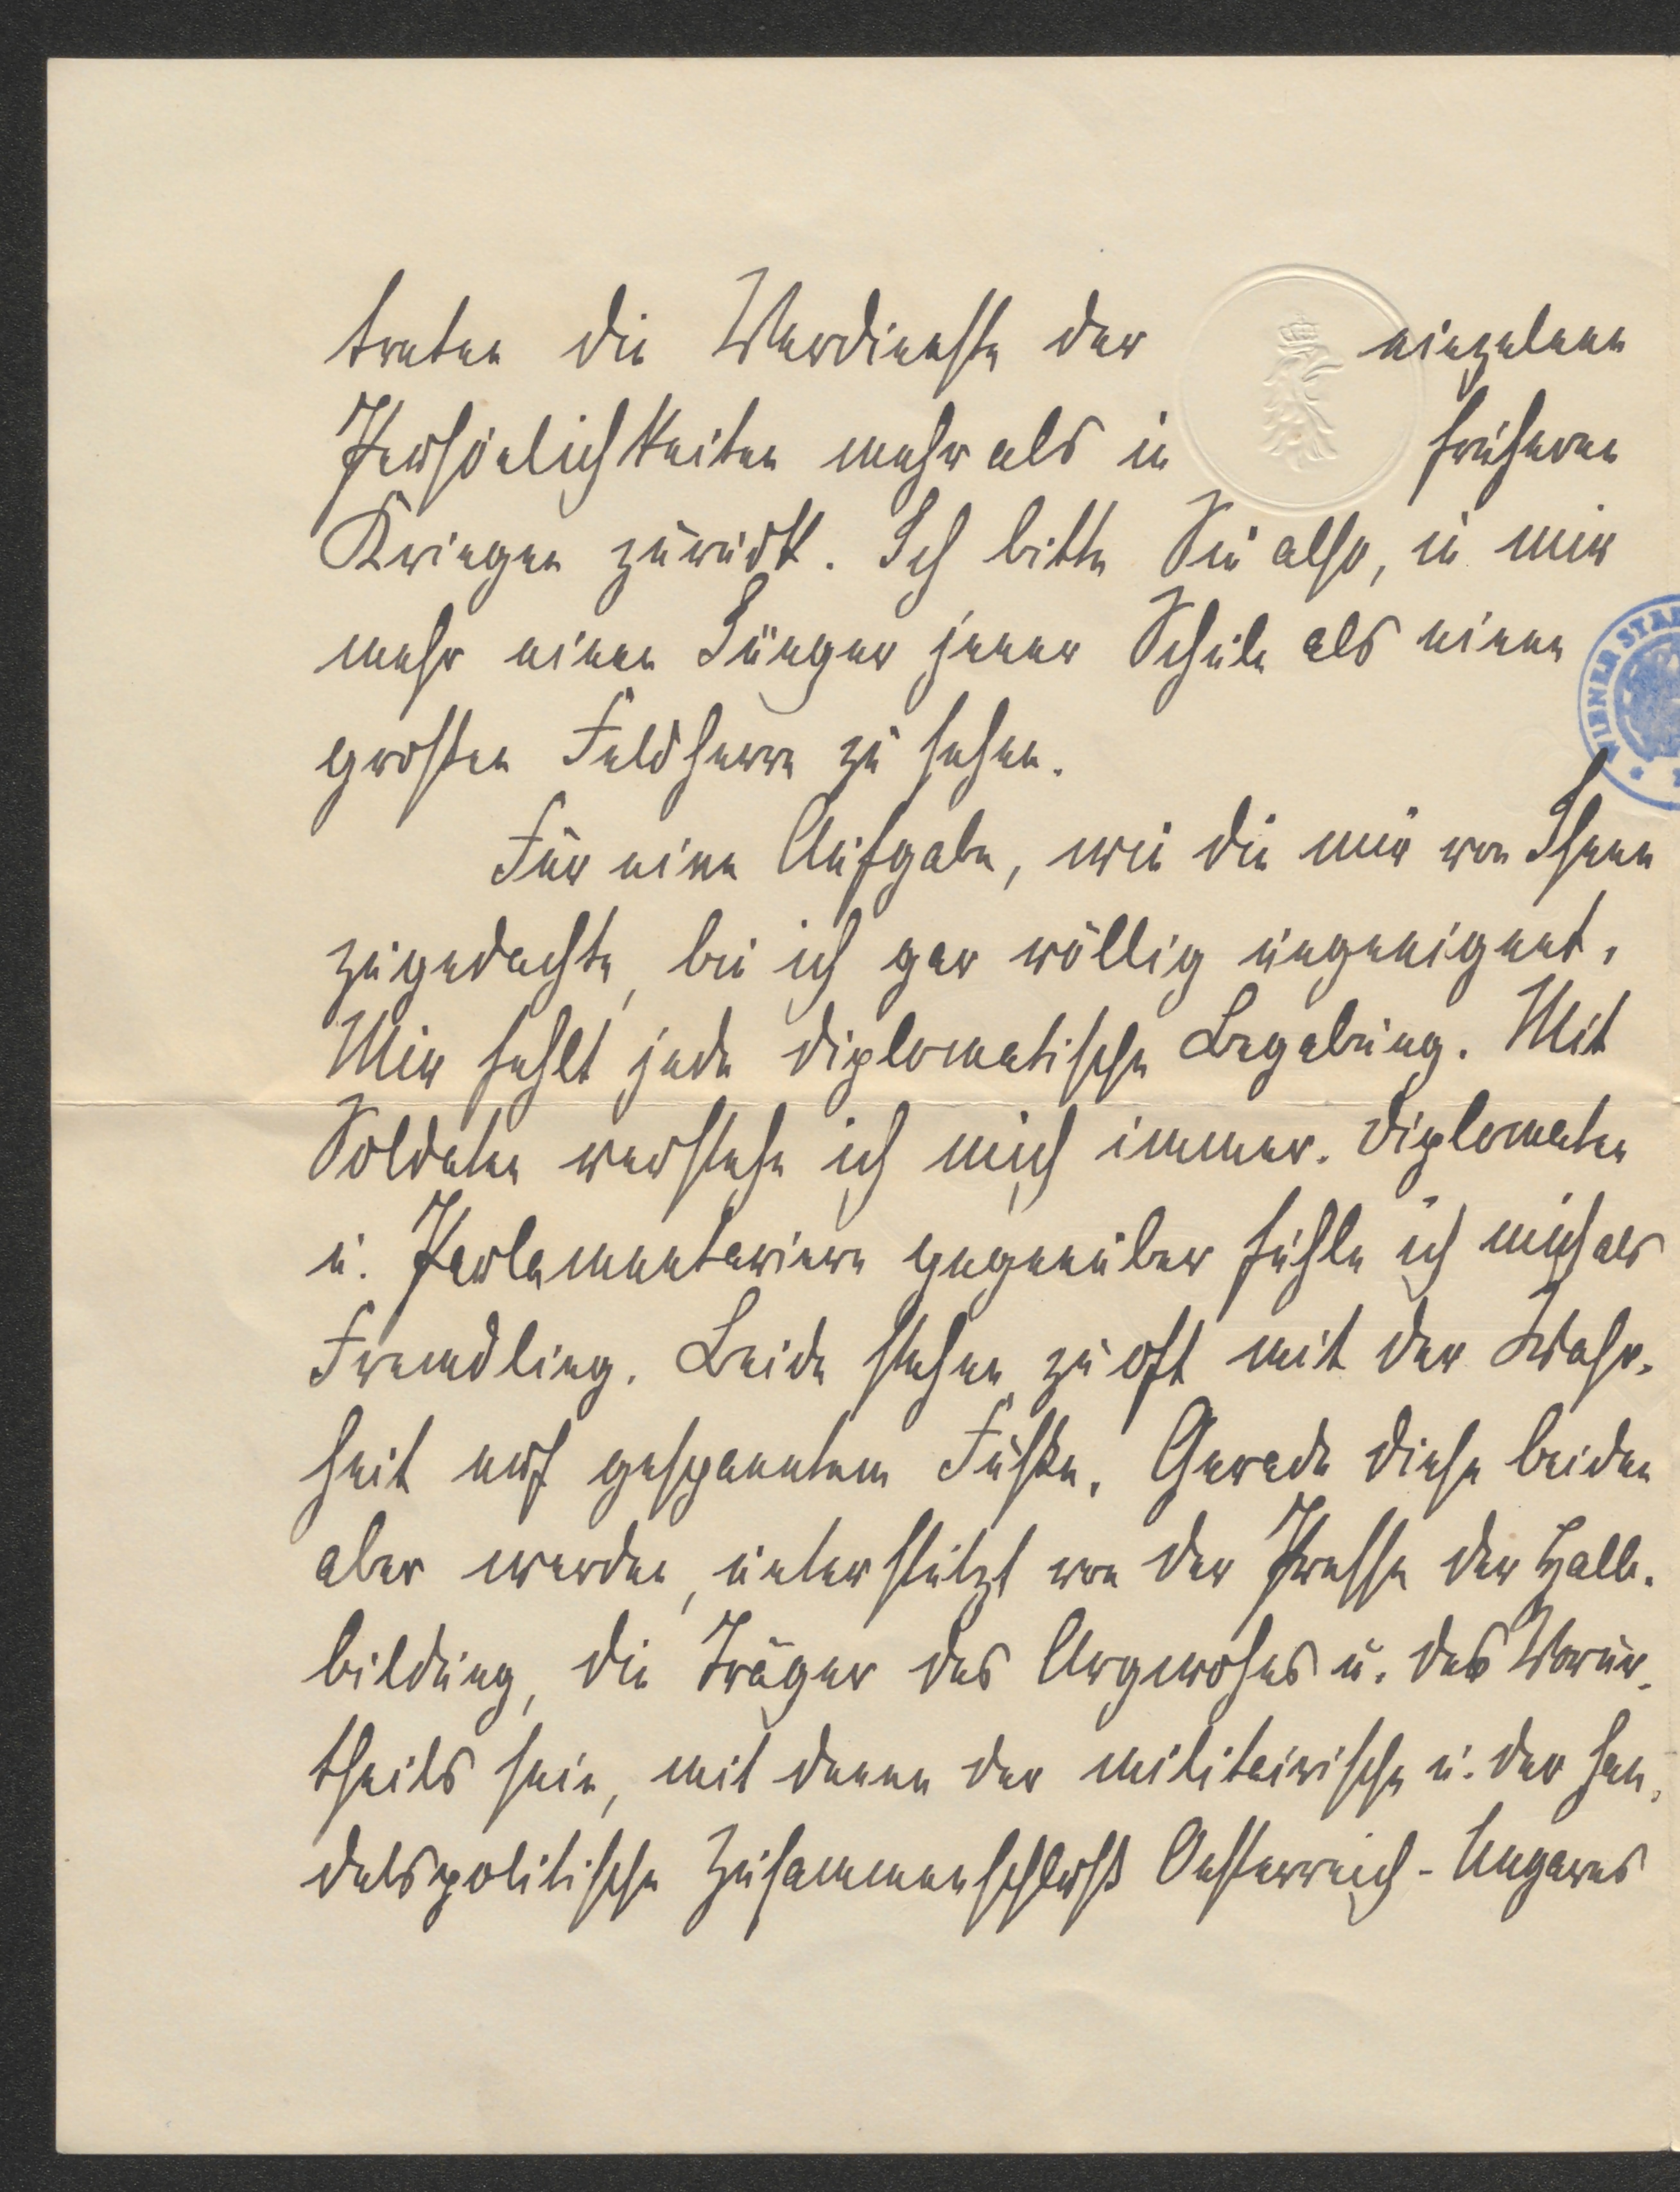 treten die Verdienste der einzelnen
Persönlichkeiten mehr als in früheren
Kriegen zurück. Ich bitte Sie also, in mir
mehr einen Jünger jener Schule als einen
großen Feldherrn zu sehen.
Für eine Aufgabe, wie die mir von Ihnen
zugedachte, bin ich gar völlig ungeeignet.
Mir fehlt jede diplomatische Begabung. Mit
Soldaten verstehe ich mich immer. Diplomaten
u. Parlamentariern gegenüber fühle ich mich als
Fremdling. Beide stehen zu oft mit der Wahr-
heit auf gespanntem Fuße. Gerade diese beiden
aber werden, unterstützt von der Presse der Halb-
bildung, die Träger des Argwohns u. des Vorur-
theils sein, mit denen der militärische u. der han-
delspolitische Zusammenschluß Oesterreich-Ungarns
WIENER STA